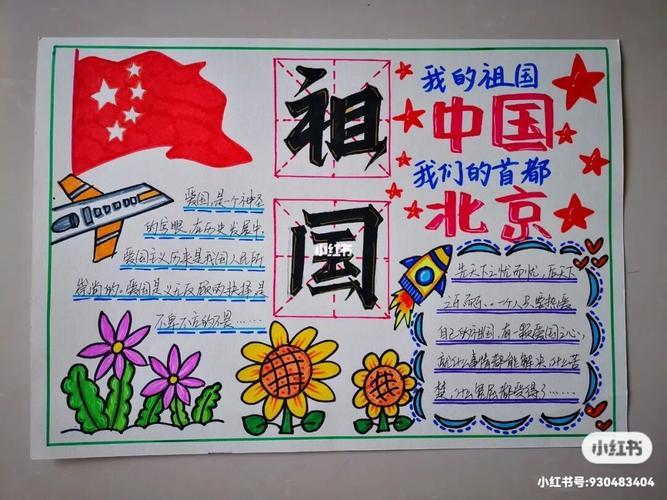 祖
国
小红书
我的祖国
中国
我们的首都
北京
爱国,是一个神圣
的字眼,在历史发展中,
爱国主义历来是我国人民所
崇尚的.爱国是义无反顾的抉择,是
不卑不亢的不畏……
先天下之忧而忧,后天下
之乐而乐.一个人只要热爱
自己的祖国,有一颗爱国之心,
就什么事情都能解决,什么苦
楚,什么冤屈都受得了……
小红书
小红书号:930483404